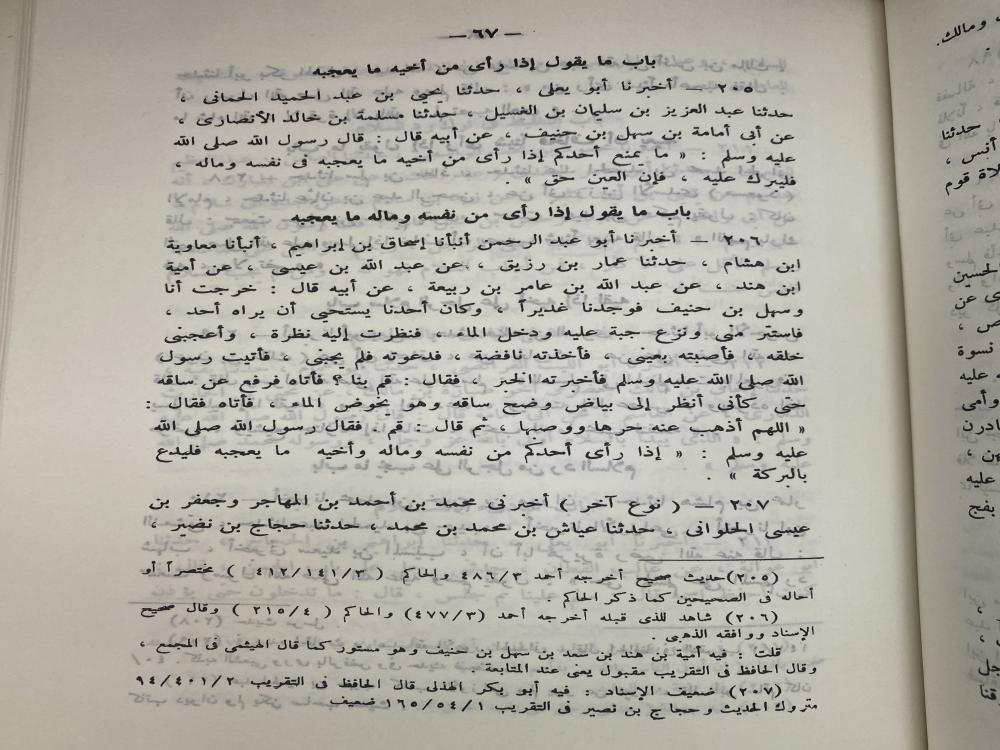 — ٦٧ —
باب ما يقول إذا رأى من أخيه ما يعجبه
٢٠٥ — أخبرنا أبو يعلى ، حدثنا يحيى بن عبد الحميد الحمانى ،
حدثنا عبد العزيز بن سليمان بن الغسيل ، حدثنا مسلمة بن خالد الأنصارى ،
عن أبى أمامة بن سهل بن حنيف ، عن أبيه قال : قال رسول الله صلى الله
عليه وسلم : « ما يمنع أحدكم إذا رأى من أخيه ما يعجبه فى نفسه وماله ،
فليبرك عليه ، فإن العين حق » .
باب ما يقول إذا رأى من نفسه وماله ما يعجبه
٢٠٦ — أخبرنا أبو عبد الرحمن أنبأنا إسحاق بن إبراهيم ، أنبأنا معاوية
ابن هشام ، حدثنا عمار بن رزيق ، عن عبد الله بن عيسى ، عن أمية
ابن هند ، عن عبد الله بن عامر بن ربيعة ، عن أبيه قال : خرجت أنا
وسهل بن حنيف فوجدنا غديراً ، وكان أحدنا يستحيى أن يراه أحد ،
فاستتر منى ونزع جبة عليه ودخل الماء ، فنظرت إليه نظرة ، وأعجبنى
خلقه ، فأصبته بعينى ، فأخذته نافضة ، فدعوته فلم يجبنى ، فأتيت رسول
الله صلى الله عليه وسلم فأخبرته الخبر ، فقال : قم بنا ؟ فأتاه فرفع عن ساقه
حتى كأنى أنظر إلى بياض وضح ساقه وهو يخوض الماء ، فأتاه فقال :
« اللهم أذهب عنه حرها ووصبها ، ثم قال : قم . فقال رسول الله صلى الله
عليه وسلم : « إذا رأى أحدكم من نفسه وماله وأخيه ما يعجبه فليدع
بالبركة » .
٢٠٧ — ( نوع آخر ) أخبرنى محمد بن أحمد بن المهاجر وجعفر بن
عيسى الحلوانى ، حدثنا عياش بن محمد بن محمد ، حدثنا حجاج بن نضير ،
(٢٠٥) حديث صحيح أخرجه أحمد ٤٨٦/٣ والحاكم ( ٤١٢/١٤١/٣ ) مختصراً أو
أحاله فى الصحيحين كما ذكر الحاكم .
(٢٠٦) شاهد للذى قبله أخرجه أحمد (٤٧٧/٣) والحاكم ( ٢١٥/٤ ) وقال صحيح
الإسناد ووافقه الذهبى .
قلت : فيه أمية بن هند بن سعد بن سهل بن حنيف وهو مستور كما قال الهيثمى فى المجمع ،
وقال الحافظ فى التقريب مقبول يعنى عند المتابعة .
(٢٠٧) ضعيف الإسناد : فيه أبو بكر الهذلى قال الحافظ فى التقريب ٩٤/٤٠١/٢
متروك الحديث وحجاج بن نصير فى التقريب ١٦٥/٥٤/١ ضعيف
، ومالك.
حدثنا
أنس ،
لاة قوم
الحسين
عن
نسوة
عليه
وأمى
عليه
بفج